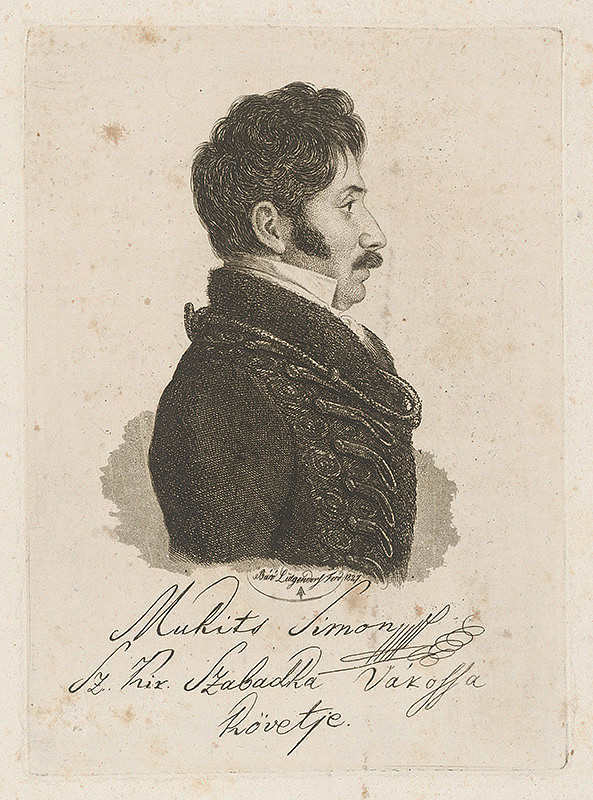 Bár. Lütgendorf Ferd. 1827
Mukits Simon
Sz. Kir. Szabadka Várossa
Követje.